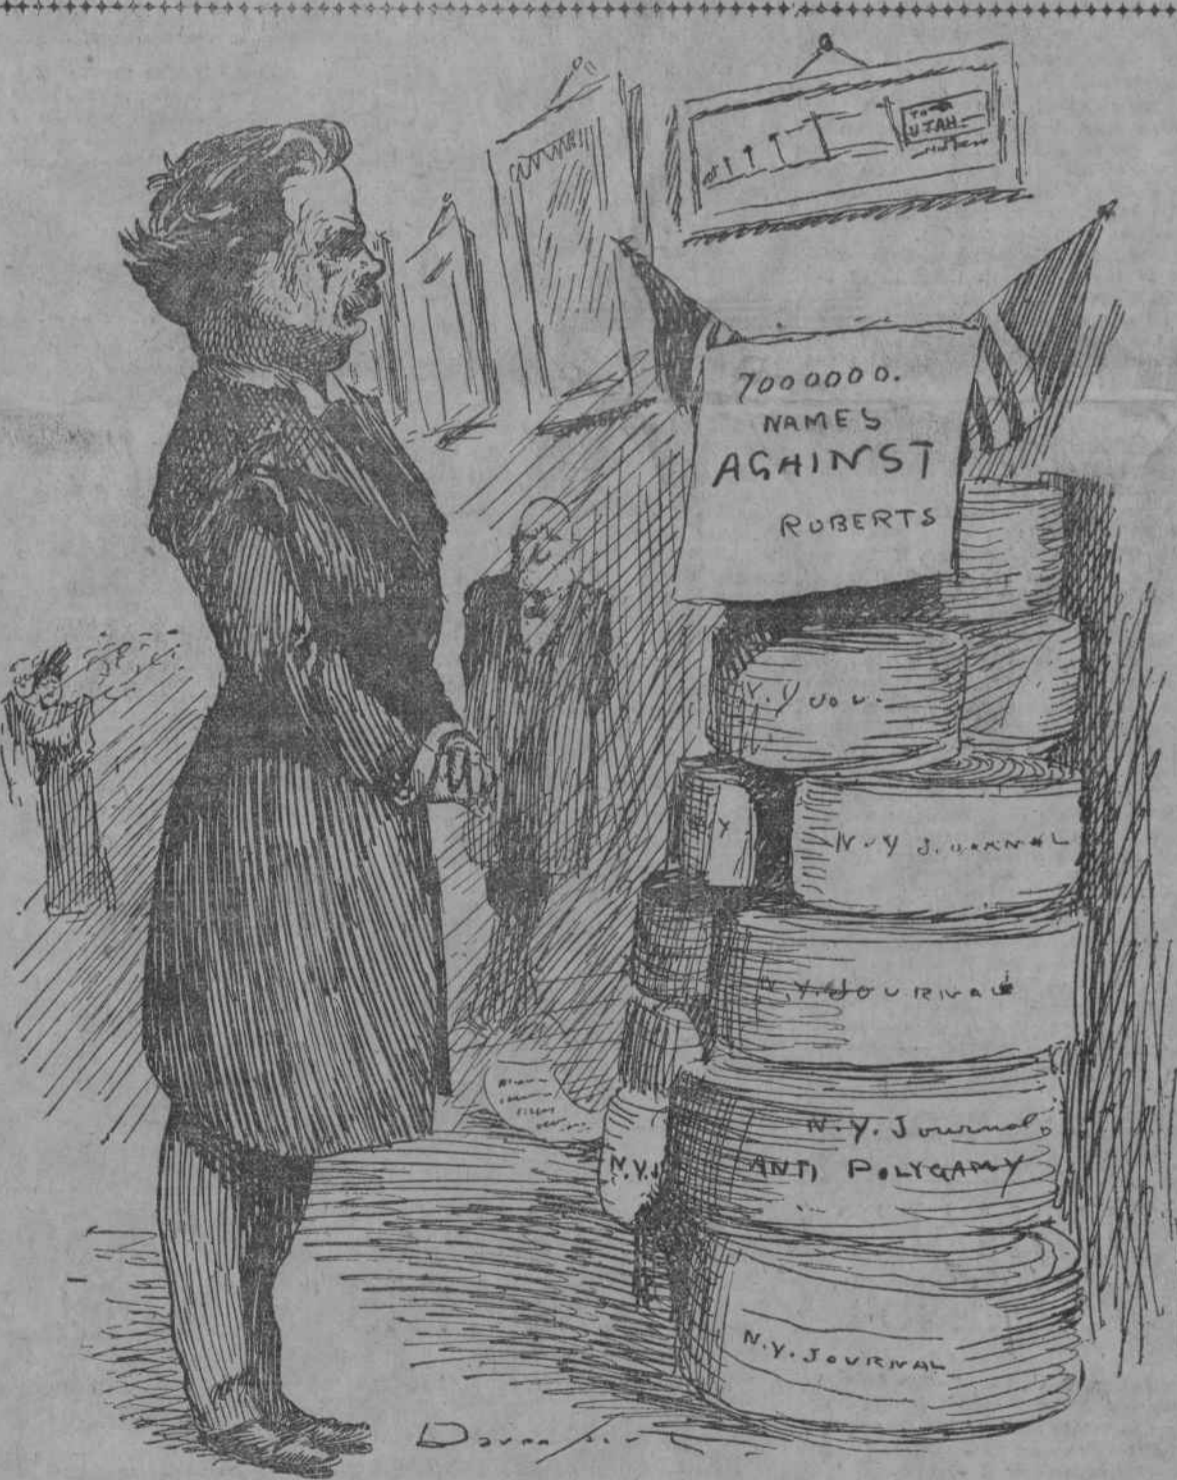 TO
UTAH
7000000.
NAMES
AGAINST
ROBERTS
N.Y JOU.
Y
N.Y JOURNAL
N.Y. JOURNAL
N.Y. Journal
ANTI POLYGAMY
N.Y.
N.Y. JOURNAL
Davenport